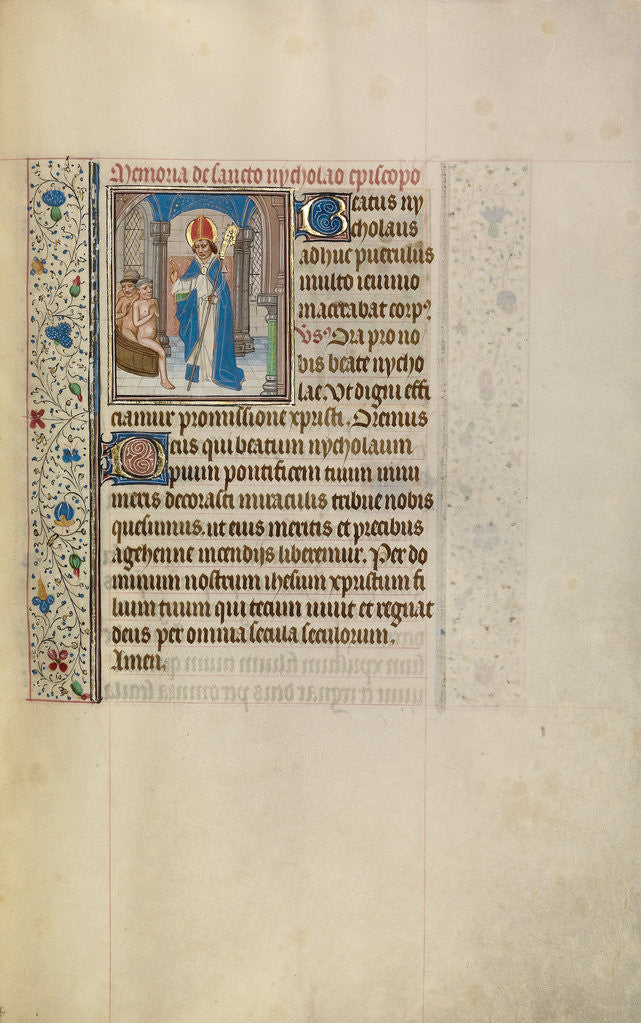 Memoria de sancto nycholao episcopo
Beatus ny
cholaus
adhuc puerulus
multo ieiunio
macerabat corpꝰ
vsꝰ Ora pro no
bis beate nycho
lae. Vt digni effi
ciamur promissione xpristi. Oremus
Deus qui beatum nycholaum
pium pontificem tuum innu
meris decorasti miraculis tribue nobis
quesumus. ut eius meritis et precibus
agehenne incendijs liberemur. Per do
minum nostrum ihesum xpristum fi
lium tuum qui tecum uiuit et regnat
deus per omnia secula seculorum.
Amen.